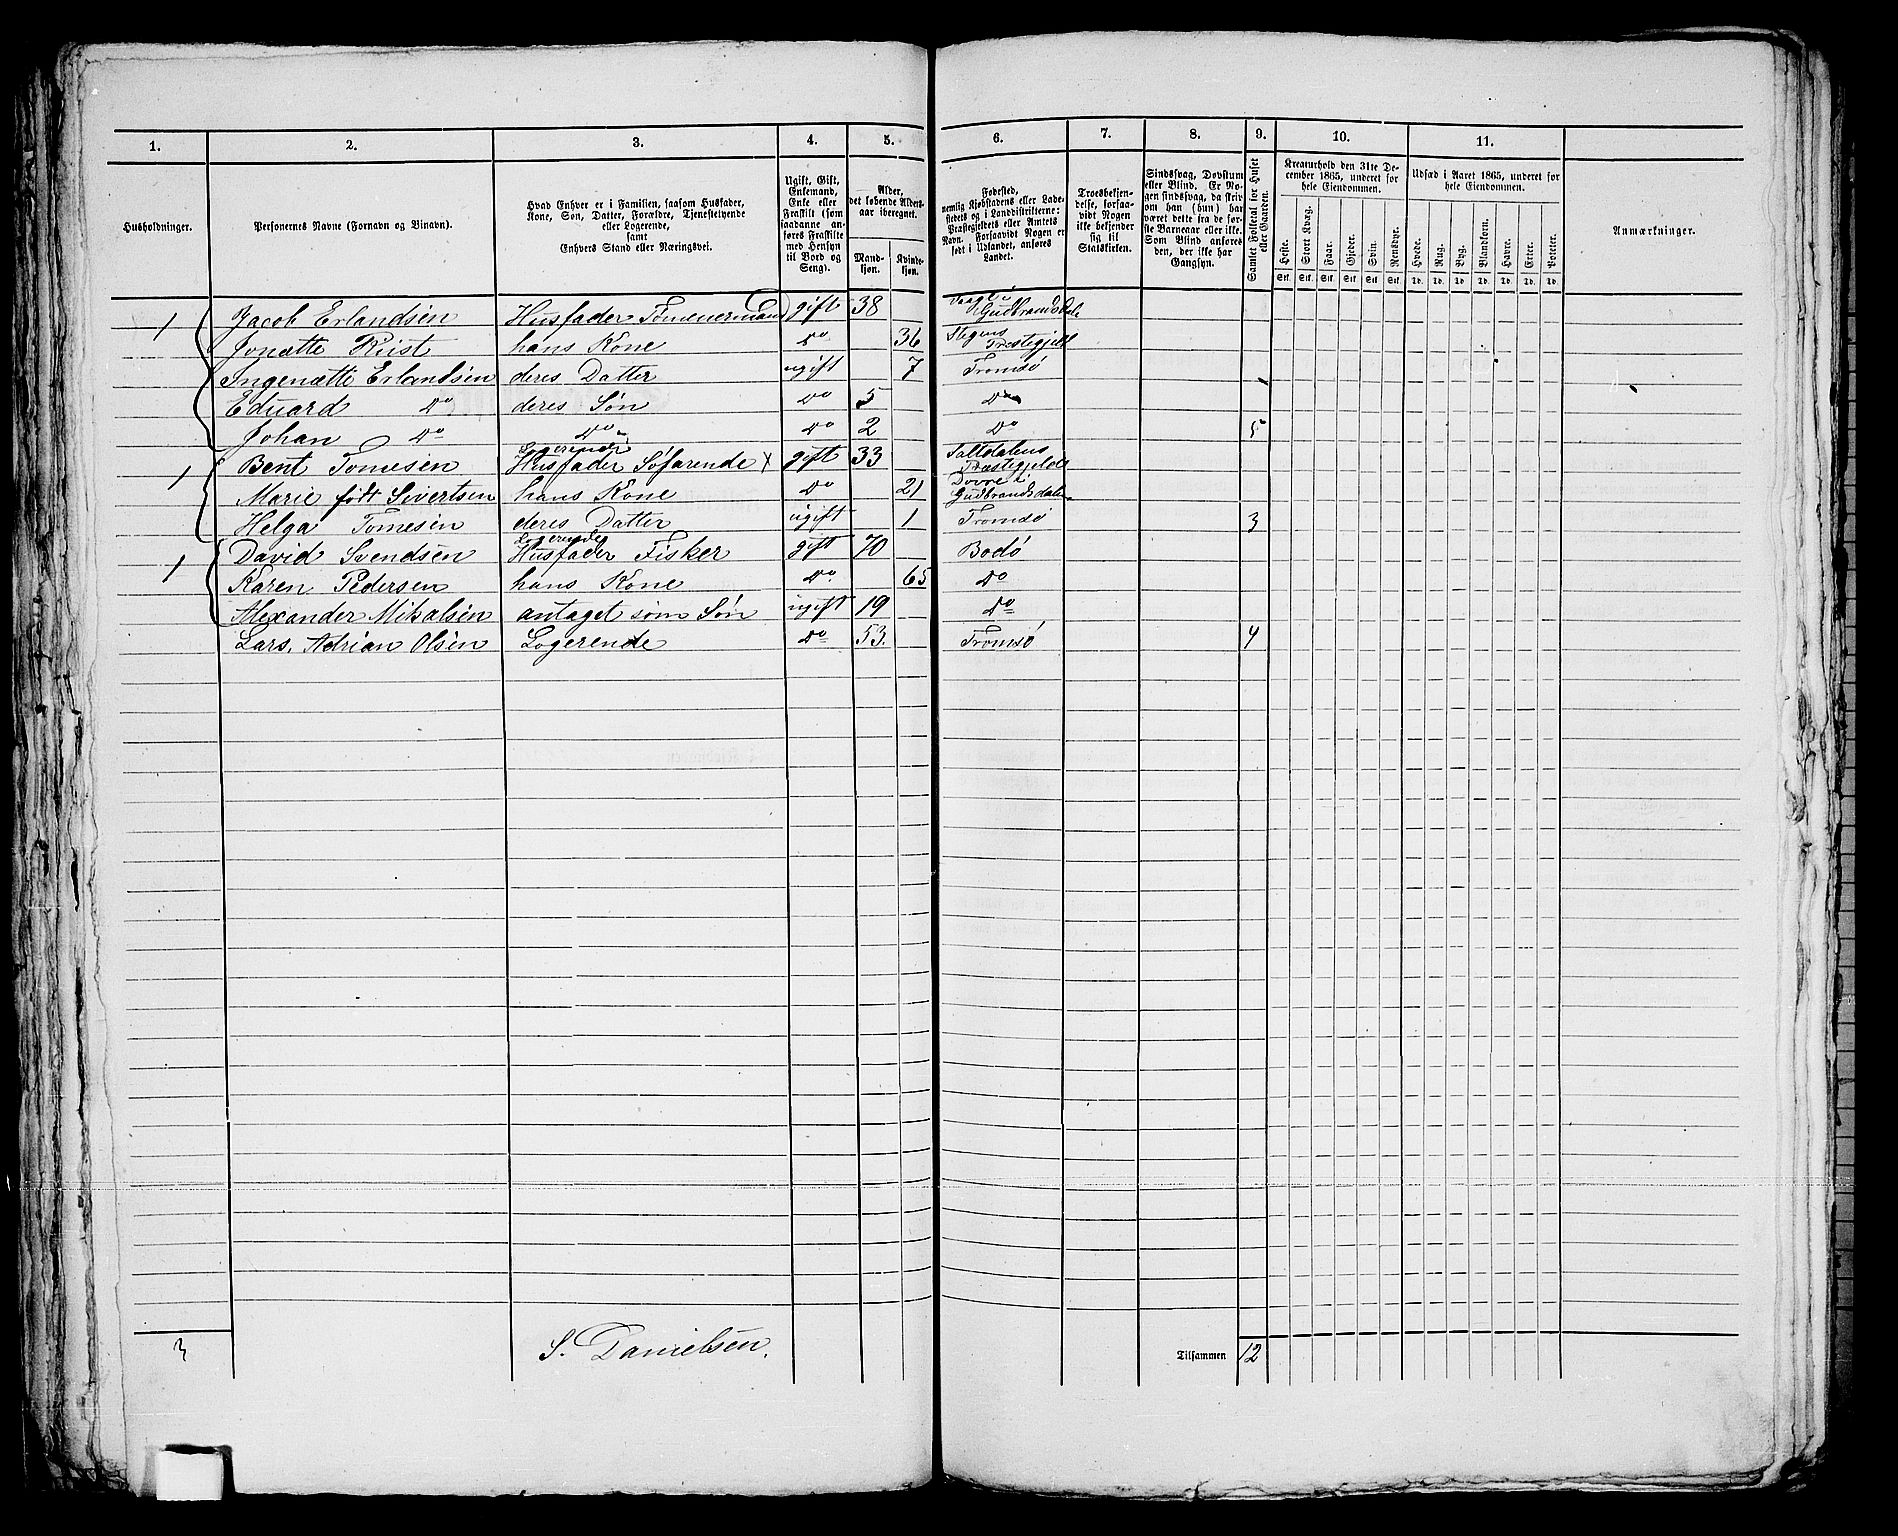 1. 2. 3. 4. 5. 6. 7. 8. 9. 10. 11.
Husholdninger.
Personernes Navne (Fornavn og Binavn).
Hvad Enhver er i Familien, saasom Husfader,
Kone, Søn, Datter, Forældre, Tjenestetyende
eller Logerende,
samt
Enhvers Stand eller Næringsvei.
Ugift, Gift,
Enkemand,
Enke eller
Fraskilt (som
saadanne an-
føres Fraskilte
med Hensyn
til Bord og
Seng).
Alder,
det løbende Alders-
aar iberegnet.
Mand-
kjøn.
Kvinde-
kjøn.
Fødested,
nemlig Kjøbstadens eller Lade-
stedets og i Landdistrikterne:
Præstegjeldets eller Amtets
Navn. Forsaavidt Nogen er
født i Udlandet, anføres
Landet.
Troesbekjen-
delse, forsaa-
vidt Nogen
ikke bekjender
sig til
Statskirken.
Sindssvag, Døvstum
eller Blind. Er No-
gen sindssvag, da skriv
om han (hun) har
været dette fra de før-
ste Barneaar eller ikke.
Som Blind anføres
den, der ikke har
Gangsyn.
Samlet Folketal for Huset
eller Gaarden.
Kreaturhold den 31te De-
cember 1865, underet for
hele Eiendommen.
Heste. Stort Kvæg. Faar. Gjeder. Svin. Rensdyr.
Stk. Stk. Stk. Stk. Stk. Stk.
Udsæd i Aaret 1865, underet for
hele Eiendommen.
Hvede. Rug. Byg. Blandkorn. Havre. Erter. Poteter.
Td. Td. Td. Td. Td. Td. Td.
Anmærkninger.
1 Jacob Erlandsen Husfader Tømmermand gift 38 Vaage i Gudbrandsdale
Jonætte Kiist hans Kone Do 36 Stegens Præstegjeld
Ingenætte Erlandsen deres Datter ugift 7 Tromsø
Eduard Do deres Søn Do 5 Do
Johan Do Do Do 2 Do 5
1 Bent Tomesen Logerende Husfader Søfarende X gift 33 Saltdalens Præstegjeld
Marie født Sivertsen hans Kone Do 21 Dovre i Gudbrandsdalen
Helga Tomesen deres Datter ugift 1 Tromsø 3
1 David Svendsen Logerende Husfader Fisker gift 70 Bodø
Karen Pedersen hans Kone Do 65 Do
Alexander Mikalsen antaget som Søn ugift 19 Do
Lars. Adrian Olsen Logerende Do 53. Tromsø 4
3 S. Danielsen. Tilsammen 12